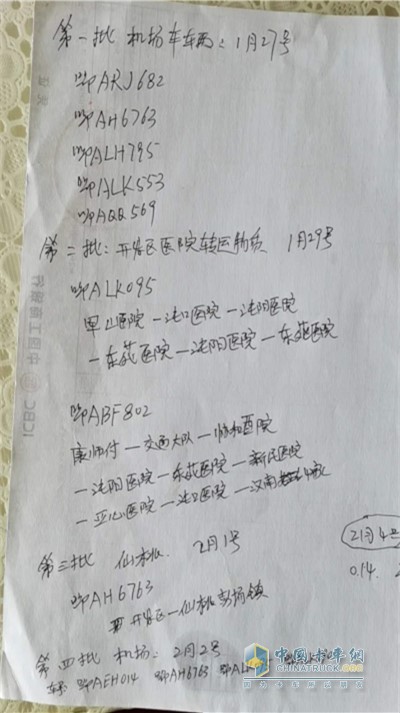 第一批 机场车车辆：1月27号
鄂ARJ682
鄂AH6763
鄂ALH795
鄂ALK553
鄂AQQ569
第二批：开发区医院转运物质 1月29号
鄂ALK095
里心医院一沌口医院一沌阳医院
一东莊医院一沌阳医院一东莊医院
鄂ABF802
康师付一交通大队一协和医院
一沌阳医院一东莊医院一新民医院
一亚心医院一沌口医院一汉南
第三批 仙桃. 2月1号
2月4号
鄂AH6763
014.
开发区一仙桃彭场镇
第四批 机场：2月2号
车 鄂AEH014 鄂AH6763 鄂ALK
中国卡车网
CHINATRUCK.ORG
ICBC 中国工商银行